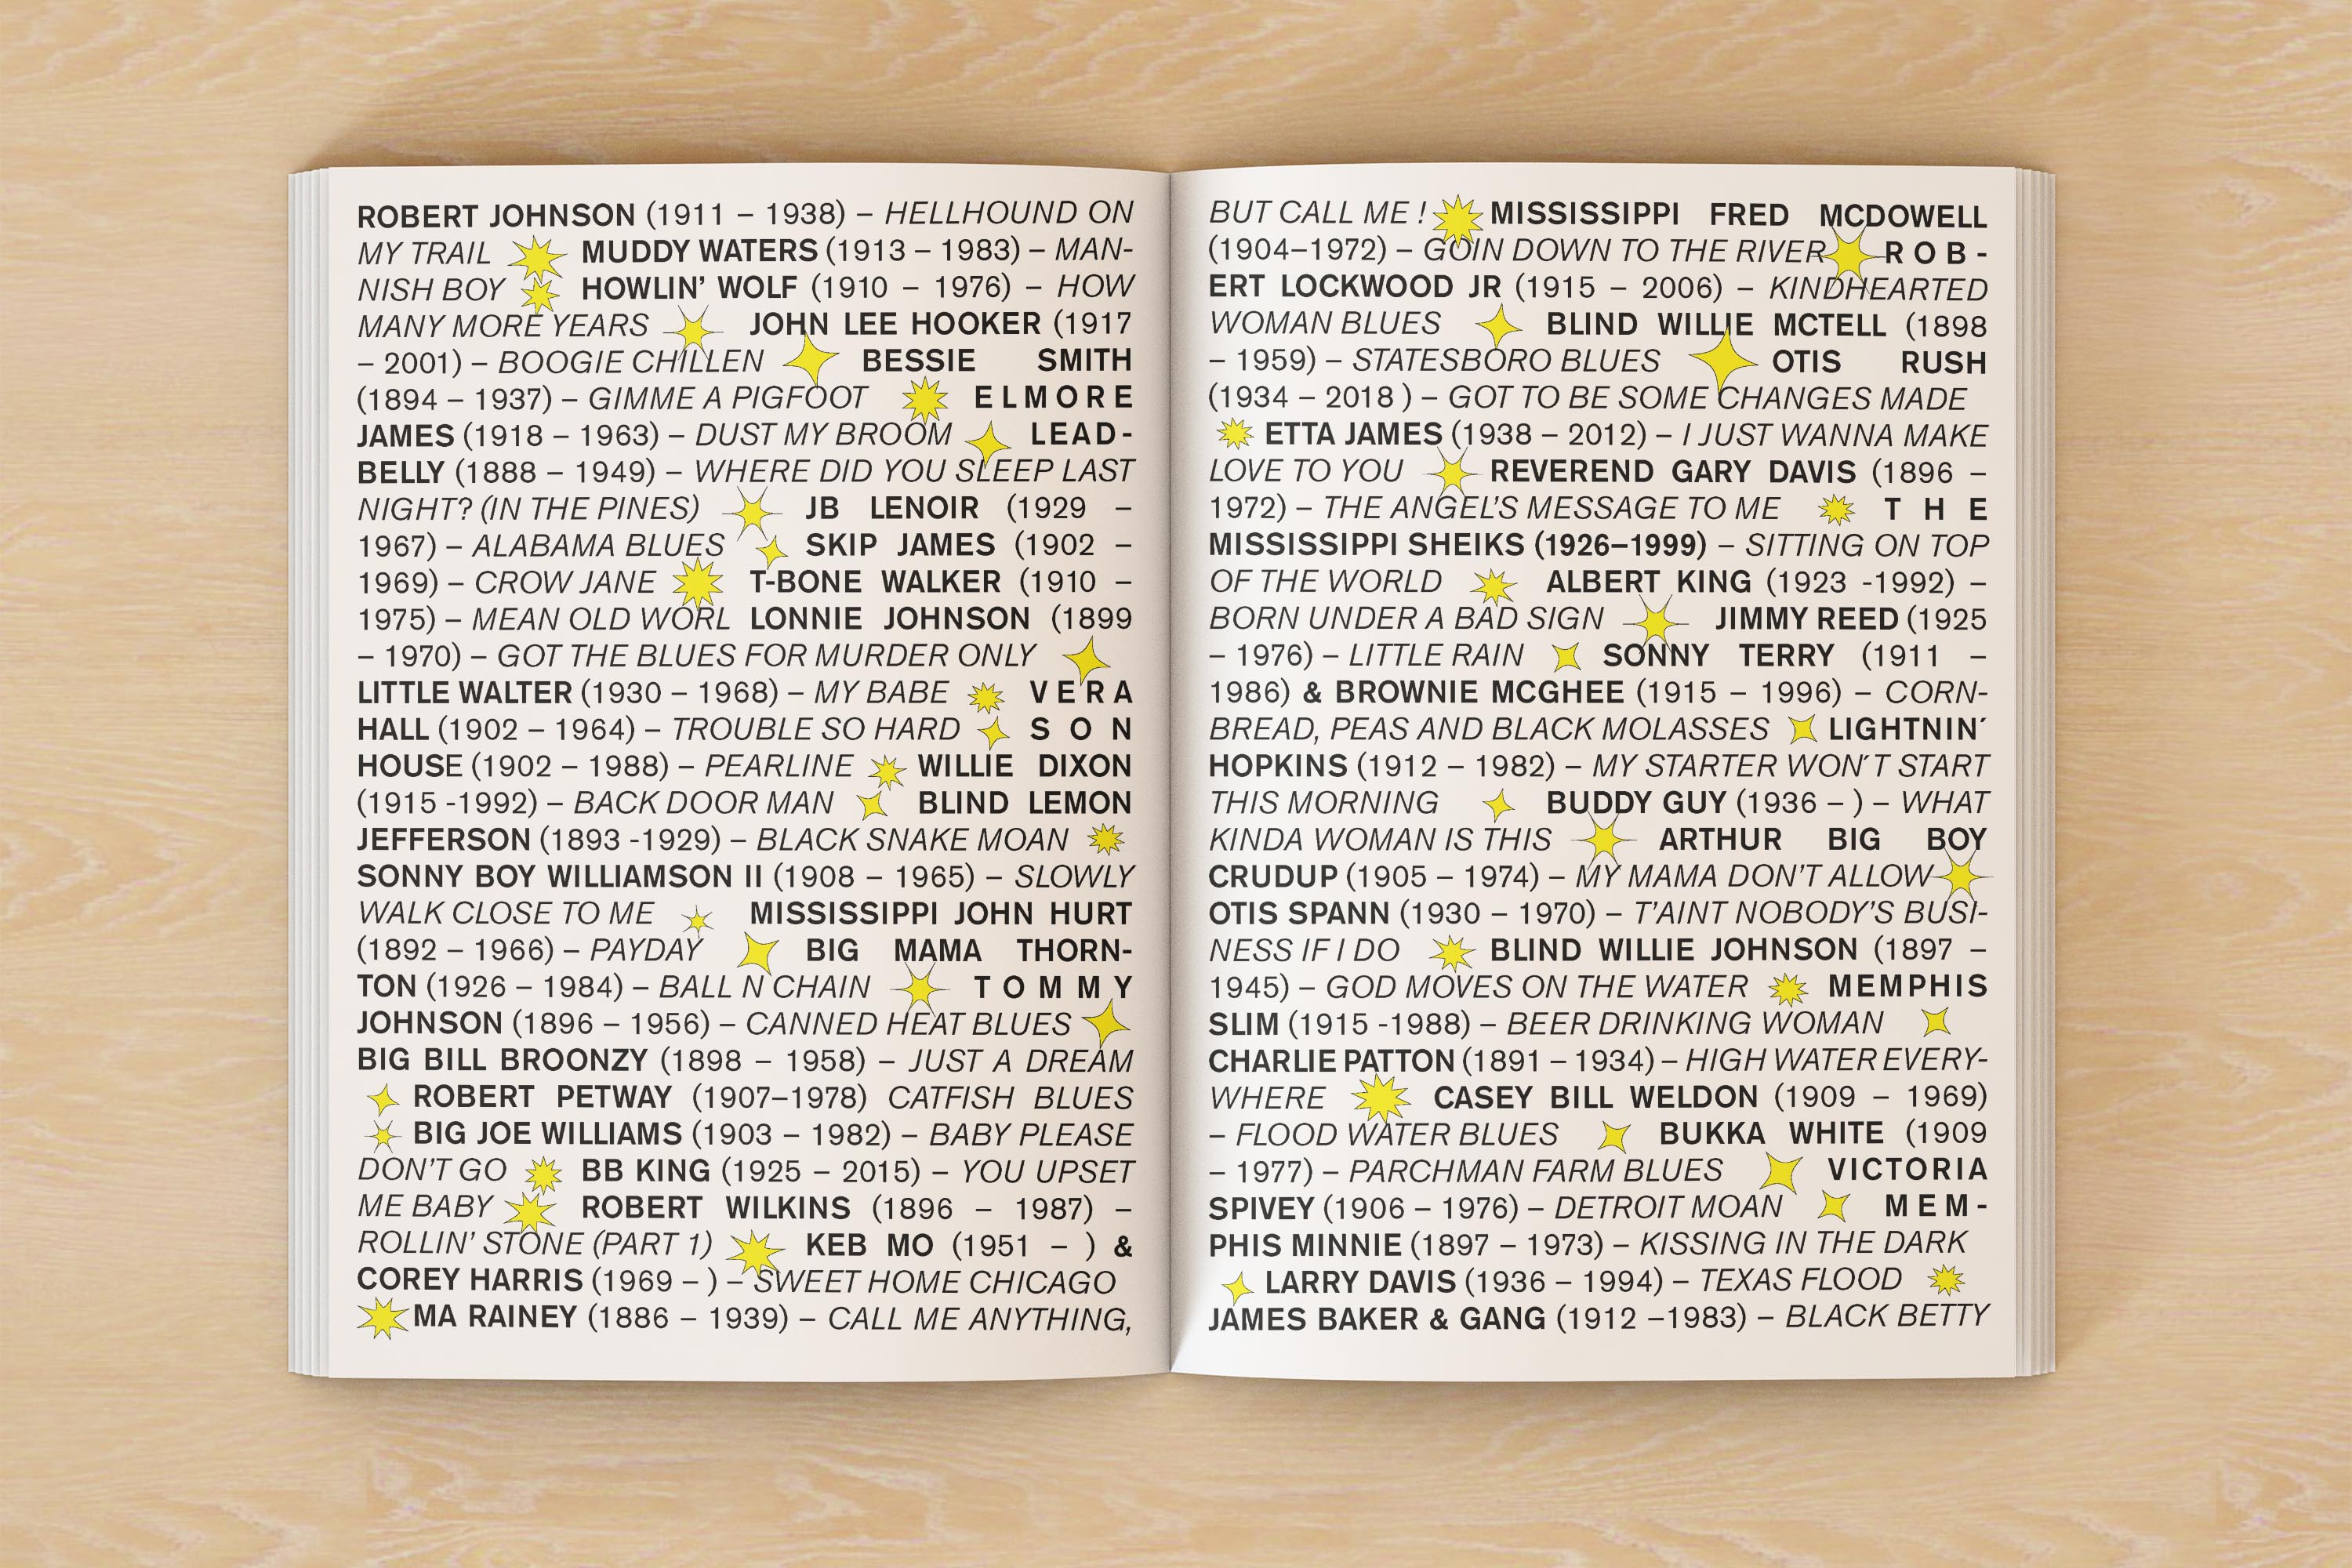 ROBERT JOHNSON (1911 – 1938) – HELLHOUND ON
MY TRAIL MUDDY WATERS (1913 – 1983) – MAN-
NISH BOY HOWLIN' WOLF (1910 – 1976) – HOW
MANY MORE YEARS JOHN LEE HOOKER (1917
– 2001) – BOOGIE CHILLEN BESSIE SMITH
(1894 – 1937) – GIMME A PIGFOOT ELMORE
JAMES (1918 – 1963) – DUST MY BROOM LEAD-
BELLY (1888 – 1949) – WHERE DID YOU SLEEP LAST
NIGHT? (IN THE PINES) JB LENOIR (1929 –
1967) – ALABAMA BLUES SKIP JAMES (1902 –
1969) – CROW JANE T-BONE WALKER (1910 –
1975) – MEAN OLD WORL LONNIE JOHNSON (1899
– 1970) – GOT THE BLUES FOR MURDER ONLY
LITTLE WALTER (1930 – 1968) – MY BABE VERA
HALL (1902 – 1964) – TROUBLE SO HARD SON
HOUSE (1902 – 1988) – PEARLINE WILLIE DIXON
(1915 -1992) – BACK DOOR MAN BLIND LEMON
JEFFERSON (1893 -1929) – BLACK SNAKE MOAN
SONNY BOY WILLIAMSON II (1908 – 1965) – SLOWLY
WALK CLOSE TO ME MISSISSIPPI JOHN HURT
(1892 – 1966) – PAYDAY BIG MAMA THORN-
TON (1926 – 1984) – BALL N CHAIN TOMMY
JOHNSON (1896 – 1956) – CANNED HEAT BLUES
BIG BILL BROONZY (1898 – 1958) – JUST A DREAM
ROBERT PETWAY (1907–1978) CATFISH BLUES
BIG JOE WILLIAMS (1903 – 1982) – BABY PLEASE
DON'T GO BB KING (1925 – 2015) – YOU UPSET
ME BABY ROBERT WILKINS (1896 – 1987) –
ROLLIN' STONE (PART 1) KEB MO (1951 – ) &
COREY HARRIS (1969 – ) – SWEET HOME CHICAGO
MA RAINEY (1886 – 1939) – CALL ME ANYTHING,
BUT CALL ME ! MISSISSIPPI FRED MCDOWELL
(1904–1972) – GOIN DOWN TO THE RIVER ROB-
ERT LOCKWOOD JR (1915 – 2006) – KINDHEARTED
WOMAN BLUES BLIND WILLIE MCTELL (1898
– 1959) – STATESBORO BLUES OTIS RUSH
(1934 – 2018 ) – GOT TO BE SOME CHANGES MADE
ETTA JAMES (1938 – 2012) – I JUST WANNA MAKE
LOVE TO YOU REVEREND GARY DAVIS (1896 –
1972) – THE ANGEL'S MESSAGE TO ME THE
MISSISSIPPI SHEIKS (1926–1999) – SITTING ON TOP
OF THE WORLD ALBERT KING (1923 -1992) –
BORN UNDER A BAD SIGN JIMMY REED (1925
– 1976) – LITTLE RAIN SONNY TERRY (1911 –
1986) & BROWNIE MCGHEE (1915 – 1996) – CORN-
BREAD, PEAS AND BLACK MOLASSES LIGHTNIN´
HOPKINS (1912 – 1982) – MY STARTER WON´T START
THIS MORNING BUDDY GUY (1936 – ) – WHAT
KINDA WOMAN IS THIS ARTHUR BIG BOY
CRUDUP (1905 – 1974) – MY MAMA DON'T ALLOW
OTIS SPANN (1930 – 1970) – T'AINT NOBODY'S BUSI-
NESS IF I DO BLIND WILLIE JOHNSON (1897 –
1945) – GOD MOVES ON THE WATER MEMPHIS
SLIM (1915 -1988) – BEER DRINKING WOMAN
CHARLIE PATTON (1891 – 1934) – HIGH WATER EVERY-
WHERE CASEY BILL WELDON (1909 – 1969)
– FLOOD WATER BLUES BUKKA WHITE (1909
– 1977) – PARCHMAN FARM BLUES VICTORIA
SPIVEY (1906 – 1976) – DETROIT MOAN MEM-
PHIS MINNIE (1897 – 1973) – KISSING IN THE DARK
LARRY DAVIS (1936 – 1994) – TEXAS FLOOD
JAMES BAKER & GANG (1912 –1983) – BLACK BETTY